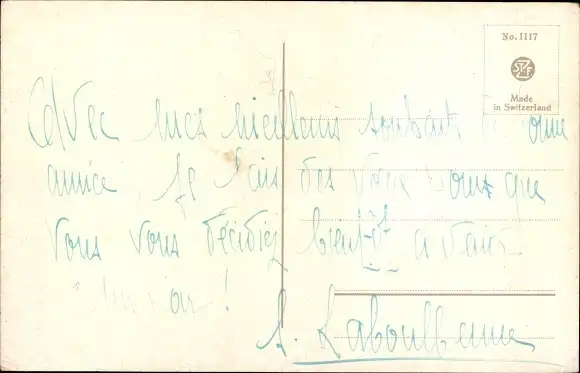 No. 1117
Made
in Switzerland
Avec mes meilleurs souhaits de bonne
année je fais des vœux pour que
vous vous décidiez bientôt à venir
voir !
A. Laboulbenne